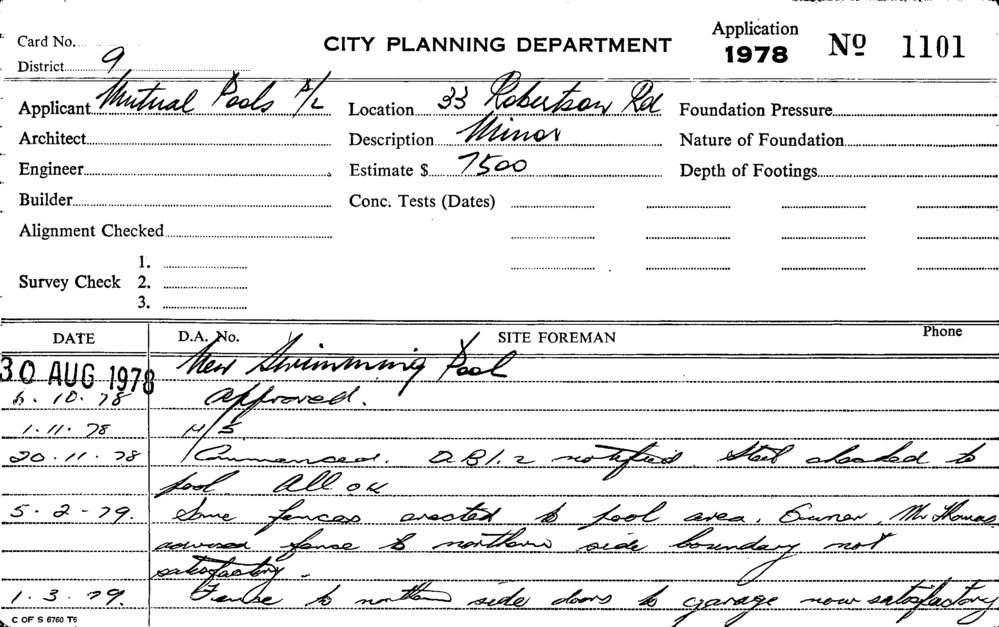 Card No.
CITY PLANNING DEPARTMENT
Application
1978
No 1101
District 9
Applicant Mutual Pools P/L
Location 33 Robertson Rd
Foundation Pressure
Architect
Description Minor
Nature of Foundation
Engineer
Estimate $ 7500
Depth of Footings
Builder
Conc. Tests (Dates)
Alignment Checked
Survey Check
1.
2.
3.
DATE
D.A. No.
SITE FOREMAN
Phone
30 AUG 1978 New Swimming Pool
6. 10. 78 approved.
1. 11. 78 N/S
20. 11. 78 Commenced. D.B. 1. 2 notified. Steel checked to
pool. All OK
5. 2 - 79. Some fences erected to pool area. Owner, Mr Thomas
advised fence to northern side boundary not
satisfactory.
1. 3. 79. Fence to northern side doors to garage now satisfactory
C OF S 6760 T6